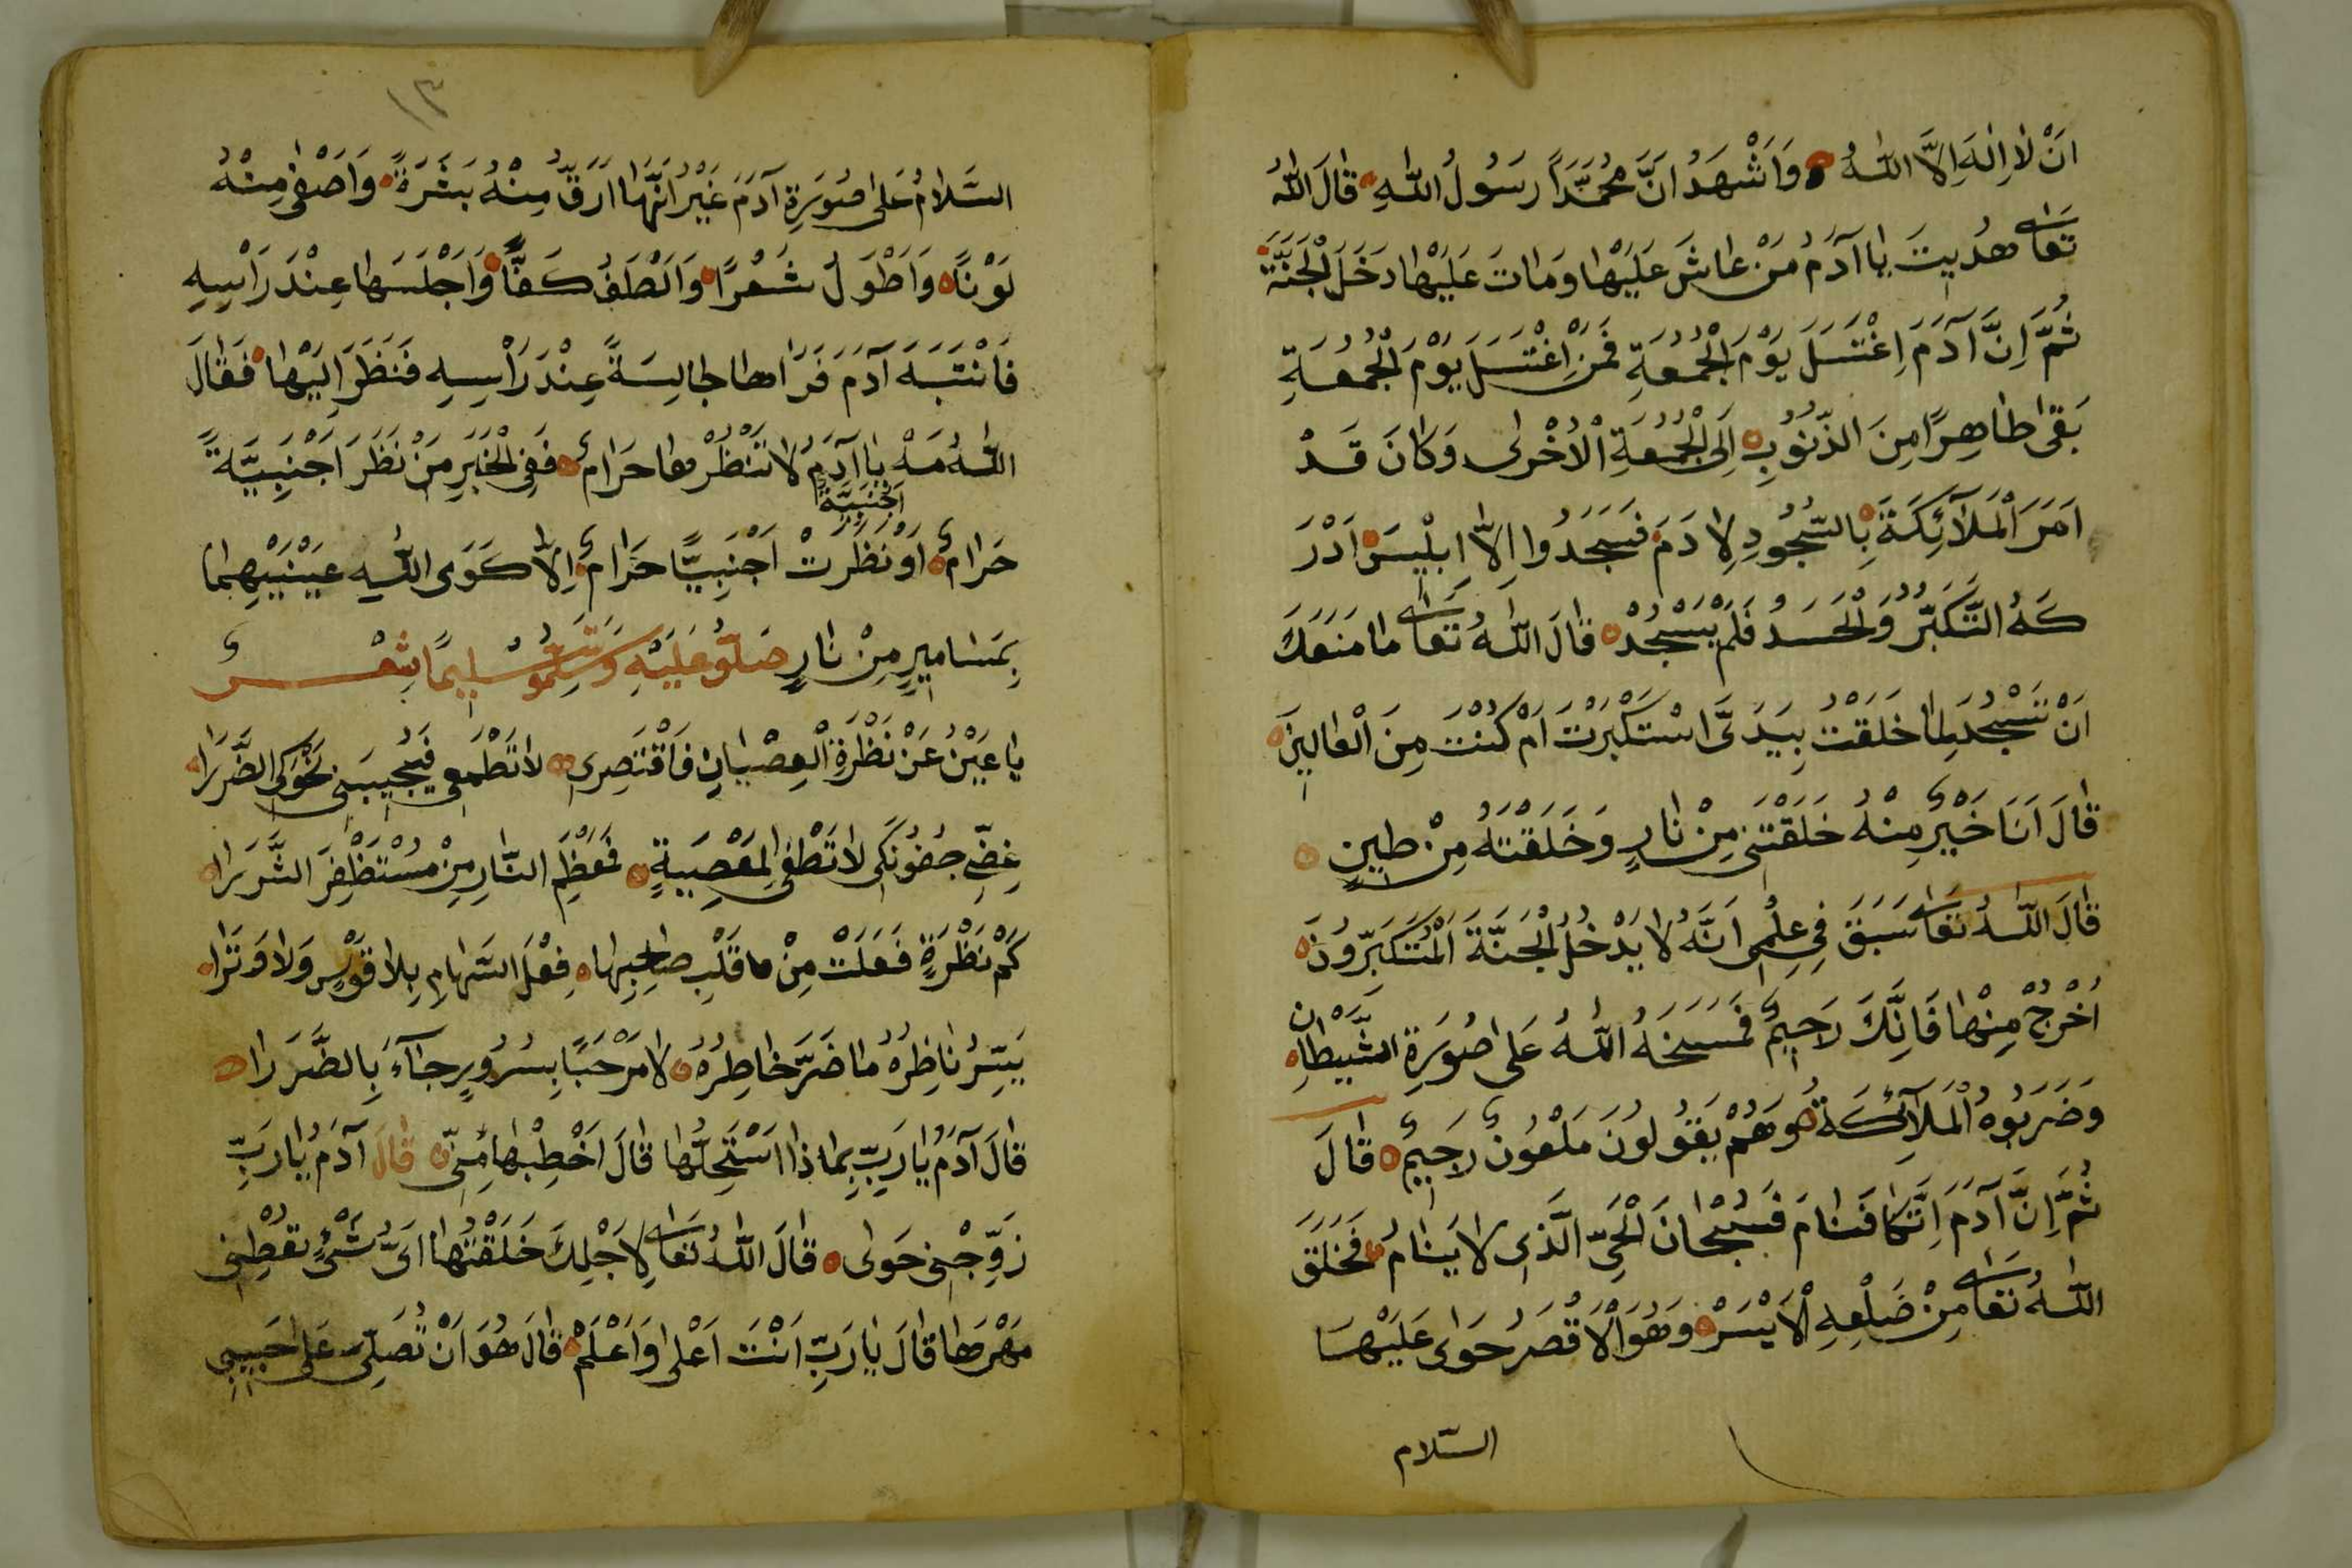 اَنْ لَا اِلٰهَ اِلَّا اللّٰهُ وَاَشْهَدُ اَنَّ مُحَمَّدًا رَسُولُ اللّٰهِ قَالَ اللّٰهُ
تَعَالٰى هُدِيتَ يَا آدَمُ مَنْ عَاشَ عَلَيْهَا وَمَاتَ عَلَيْهَا دَخَلَ الْجَنَّةَ
ثُمَّ اِنَّ آدَمَ اِغْتَسَلَ يَوْمَ الْجُمُعَةِ فَمَنْ اِغْتَسَلَ يَوْمَ الْجُمُعَةِ
بَقٰى طَاهِرًا مِنَ الذُّنُوبِ اِلَى الْجُمُعَةِ الْاُخْرٰى وَكَانَ قَدْ
اَمَرَ الْمَلَآئِكَةَ بِالسُّجُودِ لِاٰدَمَ فَسَجَدُوا اِلَّا اِبْلِيسَ اَدْرَ
كَهُ التَّكَبُّرُ وَالْحَسَدُ فَلَمْ يَسْجُدْ قَالَ اللّٰهُ تَعَالٰى مَا مَنَعَكَ
اَنْ تَسْجُدَ لِمَا خَلَقْتُ بِيَدَىَّ اسْتَكْبَرْتَ اَمْ كُنْتَ مِنَ الْعَالِينَ
قَالَ اَنَا خَيْرٌ مِنْهُ خَلَقْتَنِى مِنْ نَارٍ وَخَلَقْتَهُ مِنْ طِينٍ
قَالَ اللّٰهُ تَعَالٰى سَبَقَ فِى عِلْمِى اَنَّهُ لَا يَدْخُلُ الْجَنَّةَ الْمُتَكَبِّرُونَ
اُخْرُجْ مِنْهَا فَاِنَّكَ رَجِيمٌ فَمَسَخَهُ اللّٰهُ عَلَى صُورَةِ الشَّيْطَانِ
وَضَرَبُوهُ الْمَلَآئِكَةُ وَهُمْ يَقُولُونَ مَلْعُونٌ رَجِيمٌ قَالَ
ثُمَّ اِنَّ آدَمَ اِتَّكَا فَنَامَ فَسُبْحَانَ الْحَىِّ الَّذِى لَا يَنَامُ فَخَلَقَ
اللّٰهُ تَعَالٰى مِنْ ضِلْعِهِ الْاَيْسَرْ وَهُوَ الْاَقْصَرُ حَوٰى عَلَيْهَا
السّلام
١٣
السَّلَامُ عَلٰى صُورَةِ آدَمَ غَيْرُ اَنَّهَا اَرَقُّ مِنْهُ بَشَرَةً وَاَصْفٰى مِنْهُ
لَوْنًا وَاَطْوَلُ شَعْرًا وَاَلْطَفُ كَفًّا وَاَجْلَسَهَا عِنْدَ رَاْسِهِ
فَانْتَبَهَ آدَمَ فَرَاهَا جَالِسَةً عِنْدَ رَاْسِهِ فَنَظَرَ اِلَيْهَا فَقَالَ
اللّٰهُ مَهْ يَا آدَمُ لَا تَنْظُرْهَا حَرَامٌ فَفِى الْخَبَرِ مَنْ نَظَرَ اَجْنَبِيَّةً
اَجْنَبِيَّةٌ
حَرَامٌ اَوْ نَظَرَتْ اَجْنَبِيًّا حَرَامٌ اِلَّا كَوَى اللّٰهُ عَيْنَيْهِمَا
بِمَسَامِيرٍ مِنْ نَارٍ صَلُّو عَلَيْهِ وَسَلِّمُو تَسْلِيمًا شِعْرٌ
يَا عَيْنُ عَنْ نَظْرَةِ الْعِصْيَانِ فَاقْتَصِرِى لَا تَطْمَعِى فَيُجِيبَنِى نَحْوَكِ الضَّرَرَا
غِضِّى جُفُونَكِى لَا تَطْغِى لِمَعْصِيَةٍ فَمُعْظَمُ النَّارِ مِنْ مُسْتَظْفِرَ الشَّرَرَا
كَمْ نَظْرَةٍ فَعَلَتْ مِنْ مَا قَلْبِ صَاحِبِهَا فِعْلَ السَّهَامِ بِلَا قَوْسٍ وَلَا وَتَرَا
يَسُرُّ نَاظِرُهُ مَا ضَرَّ خَاطِرُهُ لَا مَرْحَبًا بِسُرُورٍ جَآءَ بِالضَّرَرَا
قَالَ آدَمُ يَا رَبِّ بِمَاذَا اَسْتَحِلُّهَا قَالَ اَخْطِبْهَا مِنِّى قَالَ آدَمُ يَا رَبِّ
زَوِّجْنِى حَوٰى قَالَ اللّٰهُ تَعَالٰى لِاَجْلِكَ خَلَقْتُهَا اَىَّ شَىْءٍ تُعْطِنِى
مَهْرَهَا قَالَ يَا رَبِّ اَنْتَ اَعْلٰى وَاَعْلَمْ قَالَ هُوَ اَنْ تُصَلِّىَ عَلٰى حَبِيبِى